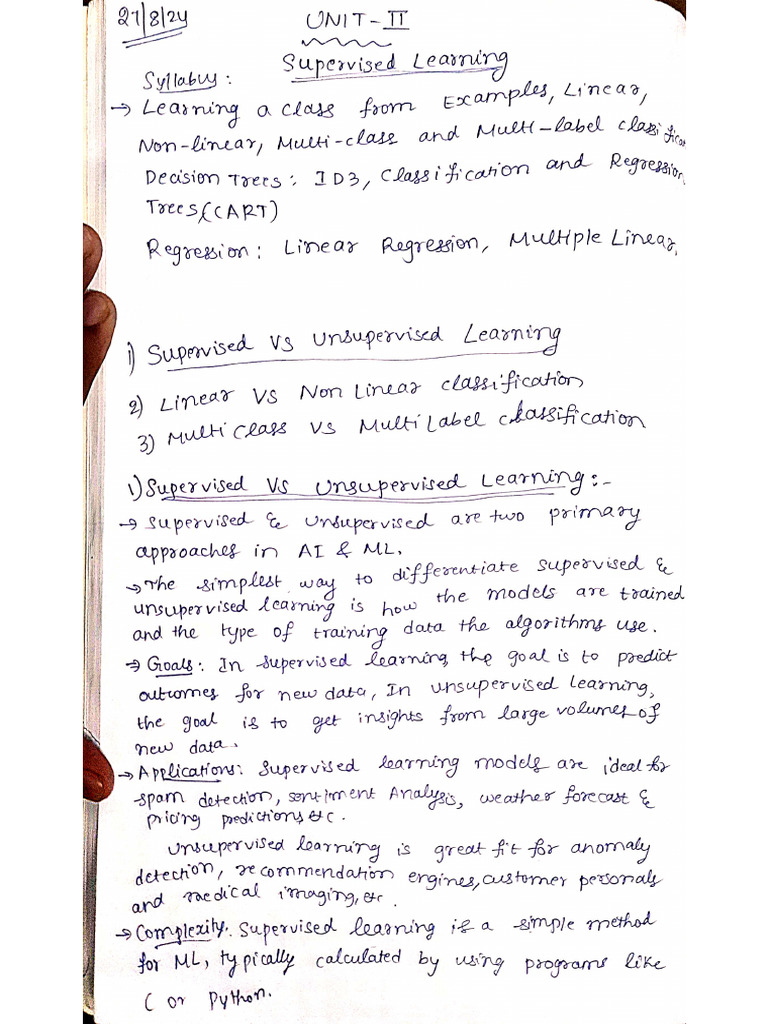 27/8/24
UNIT-II
Supervised Learning
Syllabus:
→ Learning a class from Examples, Linear,
Non-linear, Multi-class and Multi-label classificat
Decision Trees: ID3, Classification and Regression
Trees(CART)
Regression: Linear Regression, Multiple Linear,
1) Supervised VS Unsupervised Learning
2) Linear VS Non Linear classification
3) Multi Class VS Multi Label classification
1) Supervised VS Unsupervised Learning:-
→ Supervised & Unsupervised are two primary
approaches in AI & ML.
→ The simplest way to differentiate supervised &
unsupervised learning is how the models are trained
and the type of training data the algorithms use.
→ Goals: In supervised learning the goal is to predict
outcomes for new data, In unsupervised learning,
the goal is to get insights from large volumes of
new data.
→ Applications: Supervised learning models are ideal for
spam detection, sentiment Analysis, weather forecast &
pricing predictions etc.
Unsupervised learning is great fit for anomaly
detection, recommendation engines, customer personals
and medical imaging, etc.
→ Complexity: Supervised learning is a simple method
for ML, typically calculated by using programs like
C or Python.